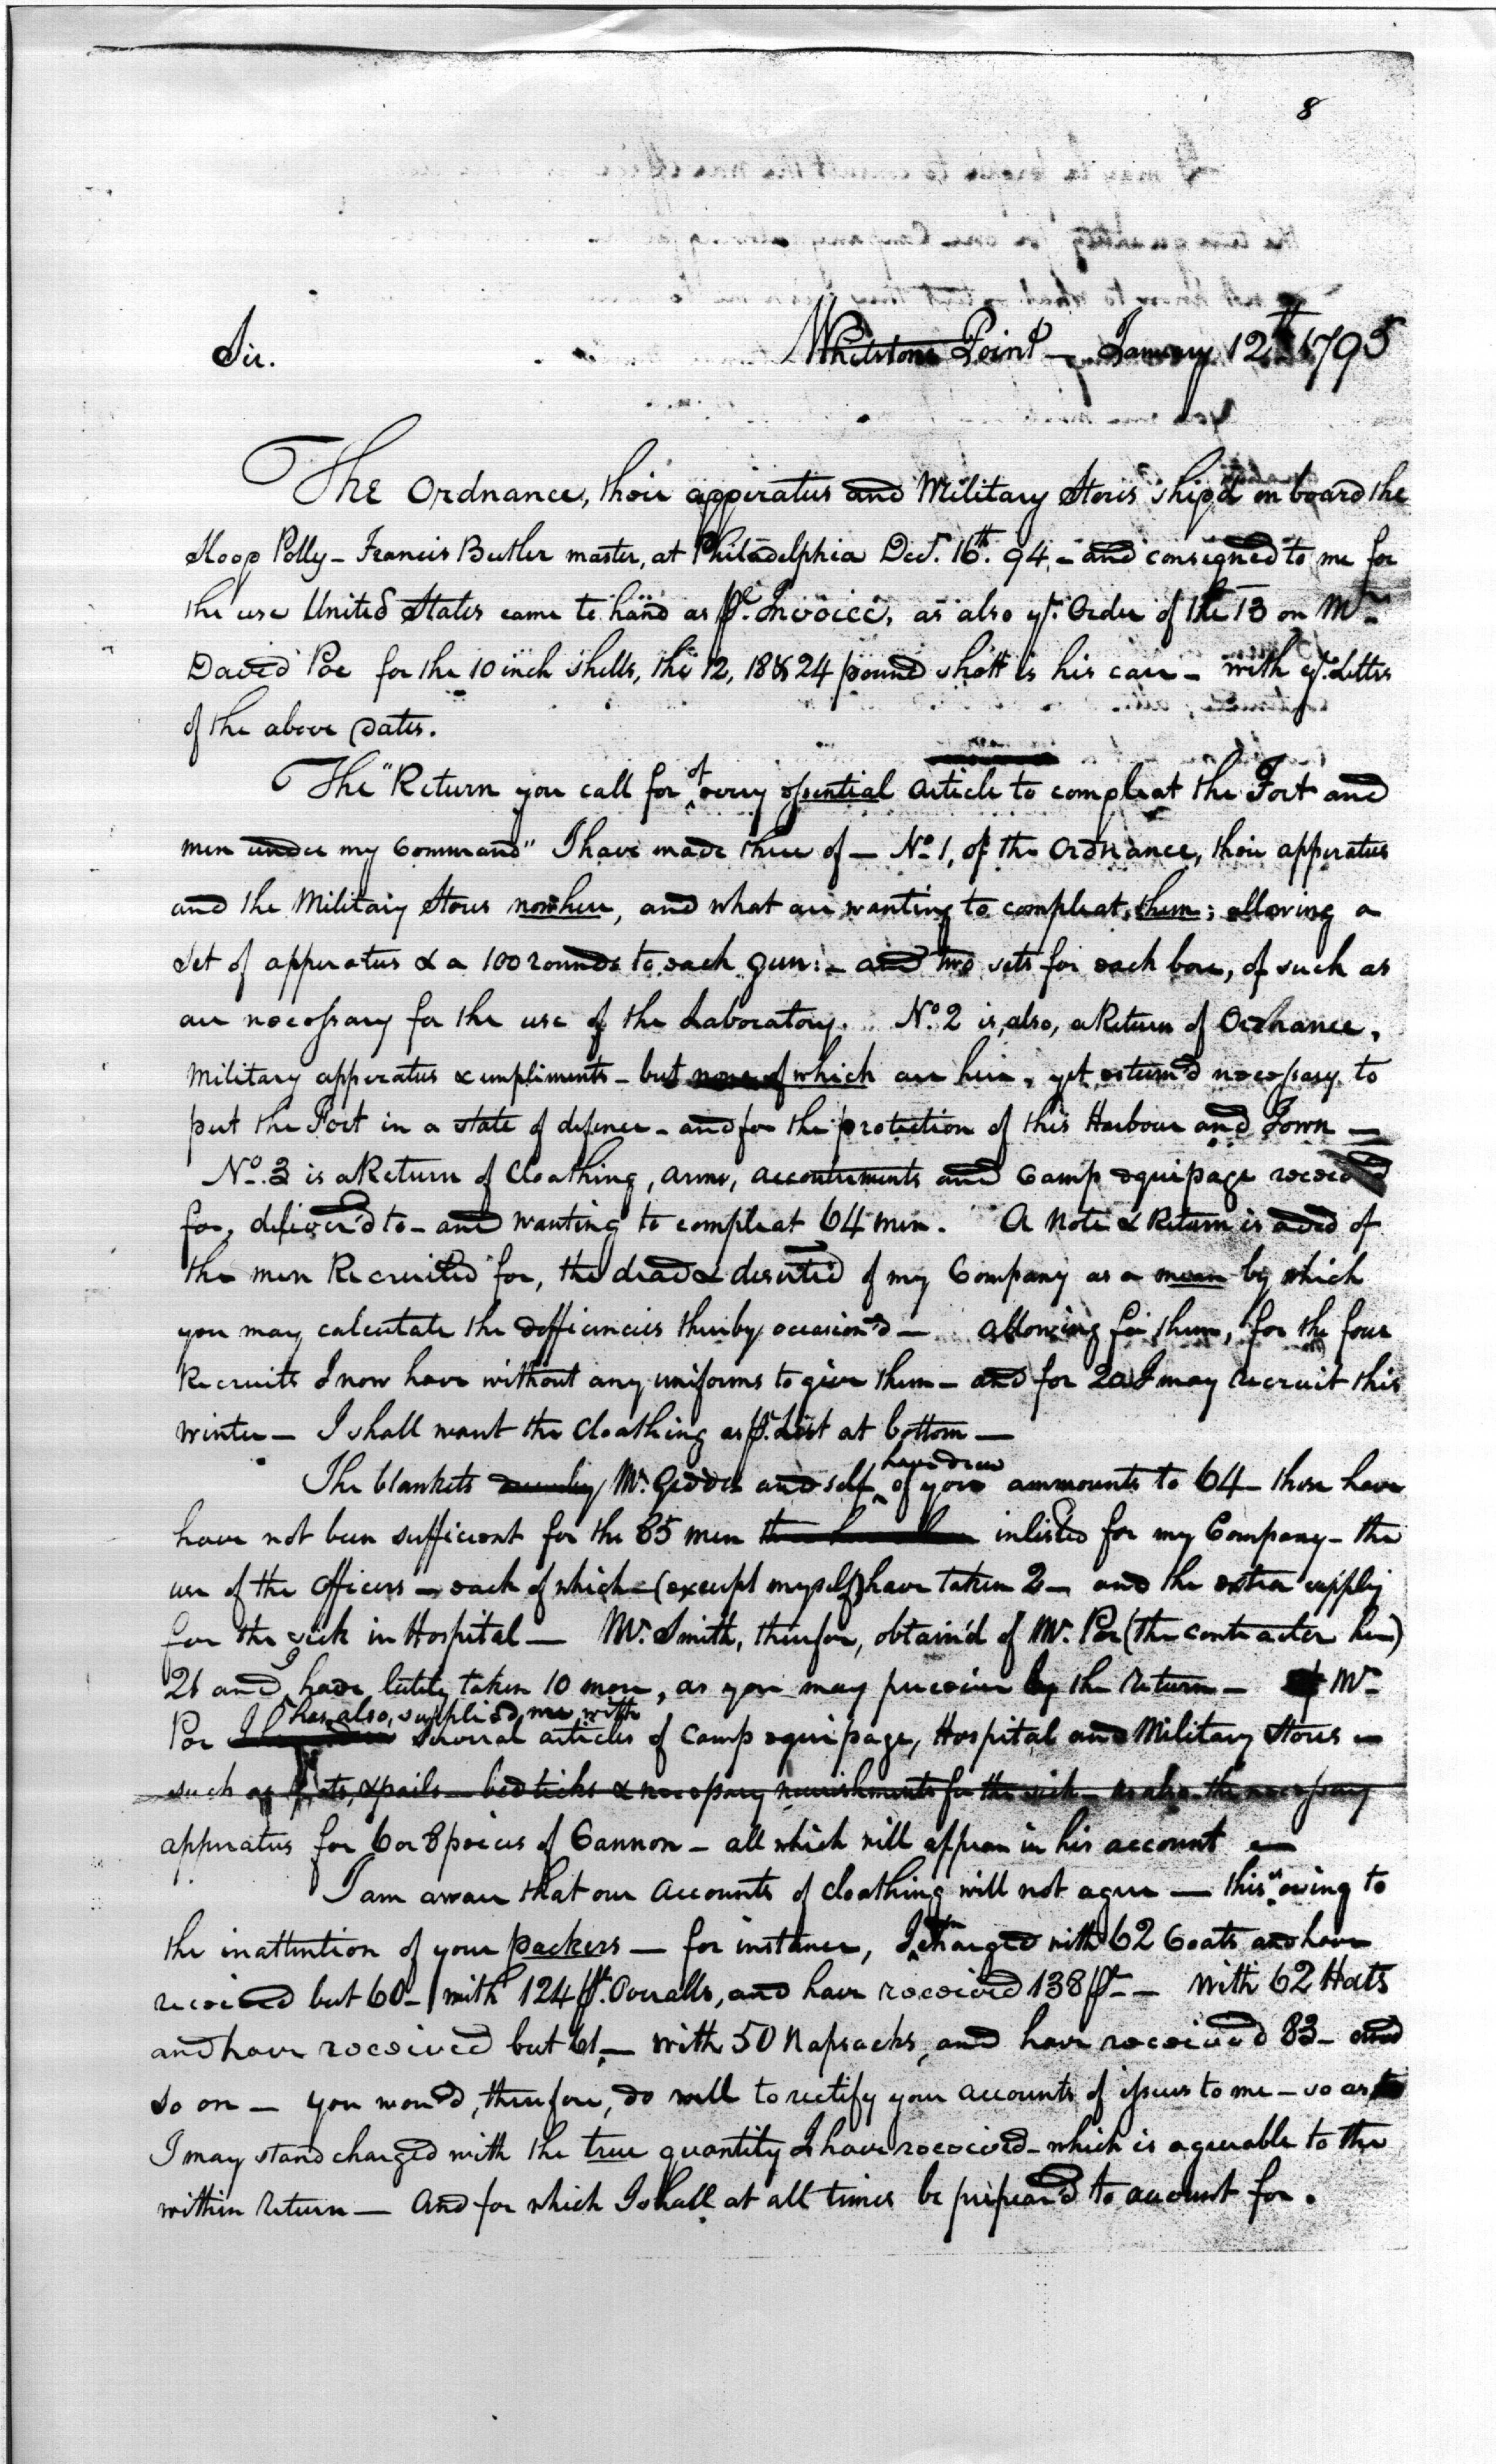 8
Sir. Whetstone Point — January 12th 1795
The Ordnance, their apperatus and Military Stores ship'd on board the
Sloop Polly - Francis Butler master, at Philadelphia Decr. 16th. 94, - and consigned to me for
the use United States came to hand as pr. Invoice, as also yr. Order of the 13 on Mr
David Poe for the 10 inch shells, the 12, 18 & 24 pound shott is his care - with yr. Letters
of the above dates.
The "Return you call for of every essential article to compleat the Fort and
men under my Command" I have made three of — No. 1, of the Ordnance, their apperatus
and the Military Stores now here, and what are wanting to compleat them; allowing a
Set of apperatus & a 100 rounds to each gun: - and two sets for each bore, of such as
are necessary for the use of the Laboratory. No. 2 is, also, a Return of Ordnance,
Military apperatus & impliments - but none of which are here, yet esteem'd necessary to
put the Fort in a state of defence - and for the protection of this Harbour and Town —
No. 3 is a Return of Cloathing, arms, accoutrements and Camp equipage received
for, deliver'd to - and wanting to compleat 64 men. A Note & Return is aded of
the men Recruited for, the dead & deserted of my Company as a mean by which
you may calculate the defficiencies thereby occasion'd — allowing for them, for the four
Recruits I now have without any uniforms to give them - and for 20 I may recruit this
winter — I shall want the Cloathing as pr. List at bottom —
have drew
The blankets Mr. Geddes and self of you ammounts to 64 - these have
have not been sufficient for the 85 men inlisted for my Company - the
use of the Officers - each of which - (except myself) have taken 2 - and the extra supply
for the sick in Hospital — Mr. Smith, therefore, obtain'd of Mr. Poe (the contracter here)
21 and I have lately taken 10 more, as you may preceive by the Return - Mr
has, also, supplied me with
Poe several articles of Camp equipage, Hospital and Military Stores -
such as pots, & pails - bed ticks & necessary nourishments for the sick - as also the necessary
apperatus for 6 or 8 peices of Cannon - all which will appear in his account —
I am aware that our Accounts of cloathing will not agree — this is owing to
the inattention of your packers — for instance, I am charged with 62 Coats and have
received but 60 - with 124 pr. Overalls, and have received 138 pr - with 62 Hats
and have received but 61, - with 50 Napsacks, and have received 83 - and
so on — you wou'd, therefore, do well to rectify your accounts of issues to me - so as
I may stand charged with the true quantity I have received - which is agreeable to the
within return — And for which I shall at all times be prepear'd to account for.